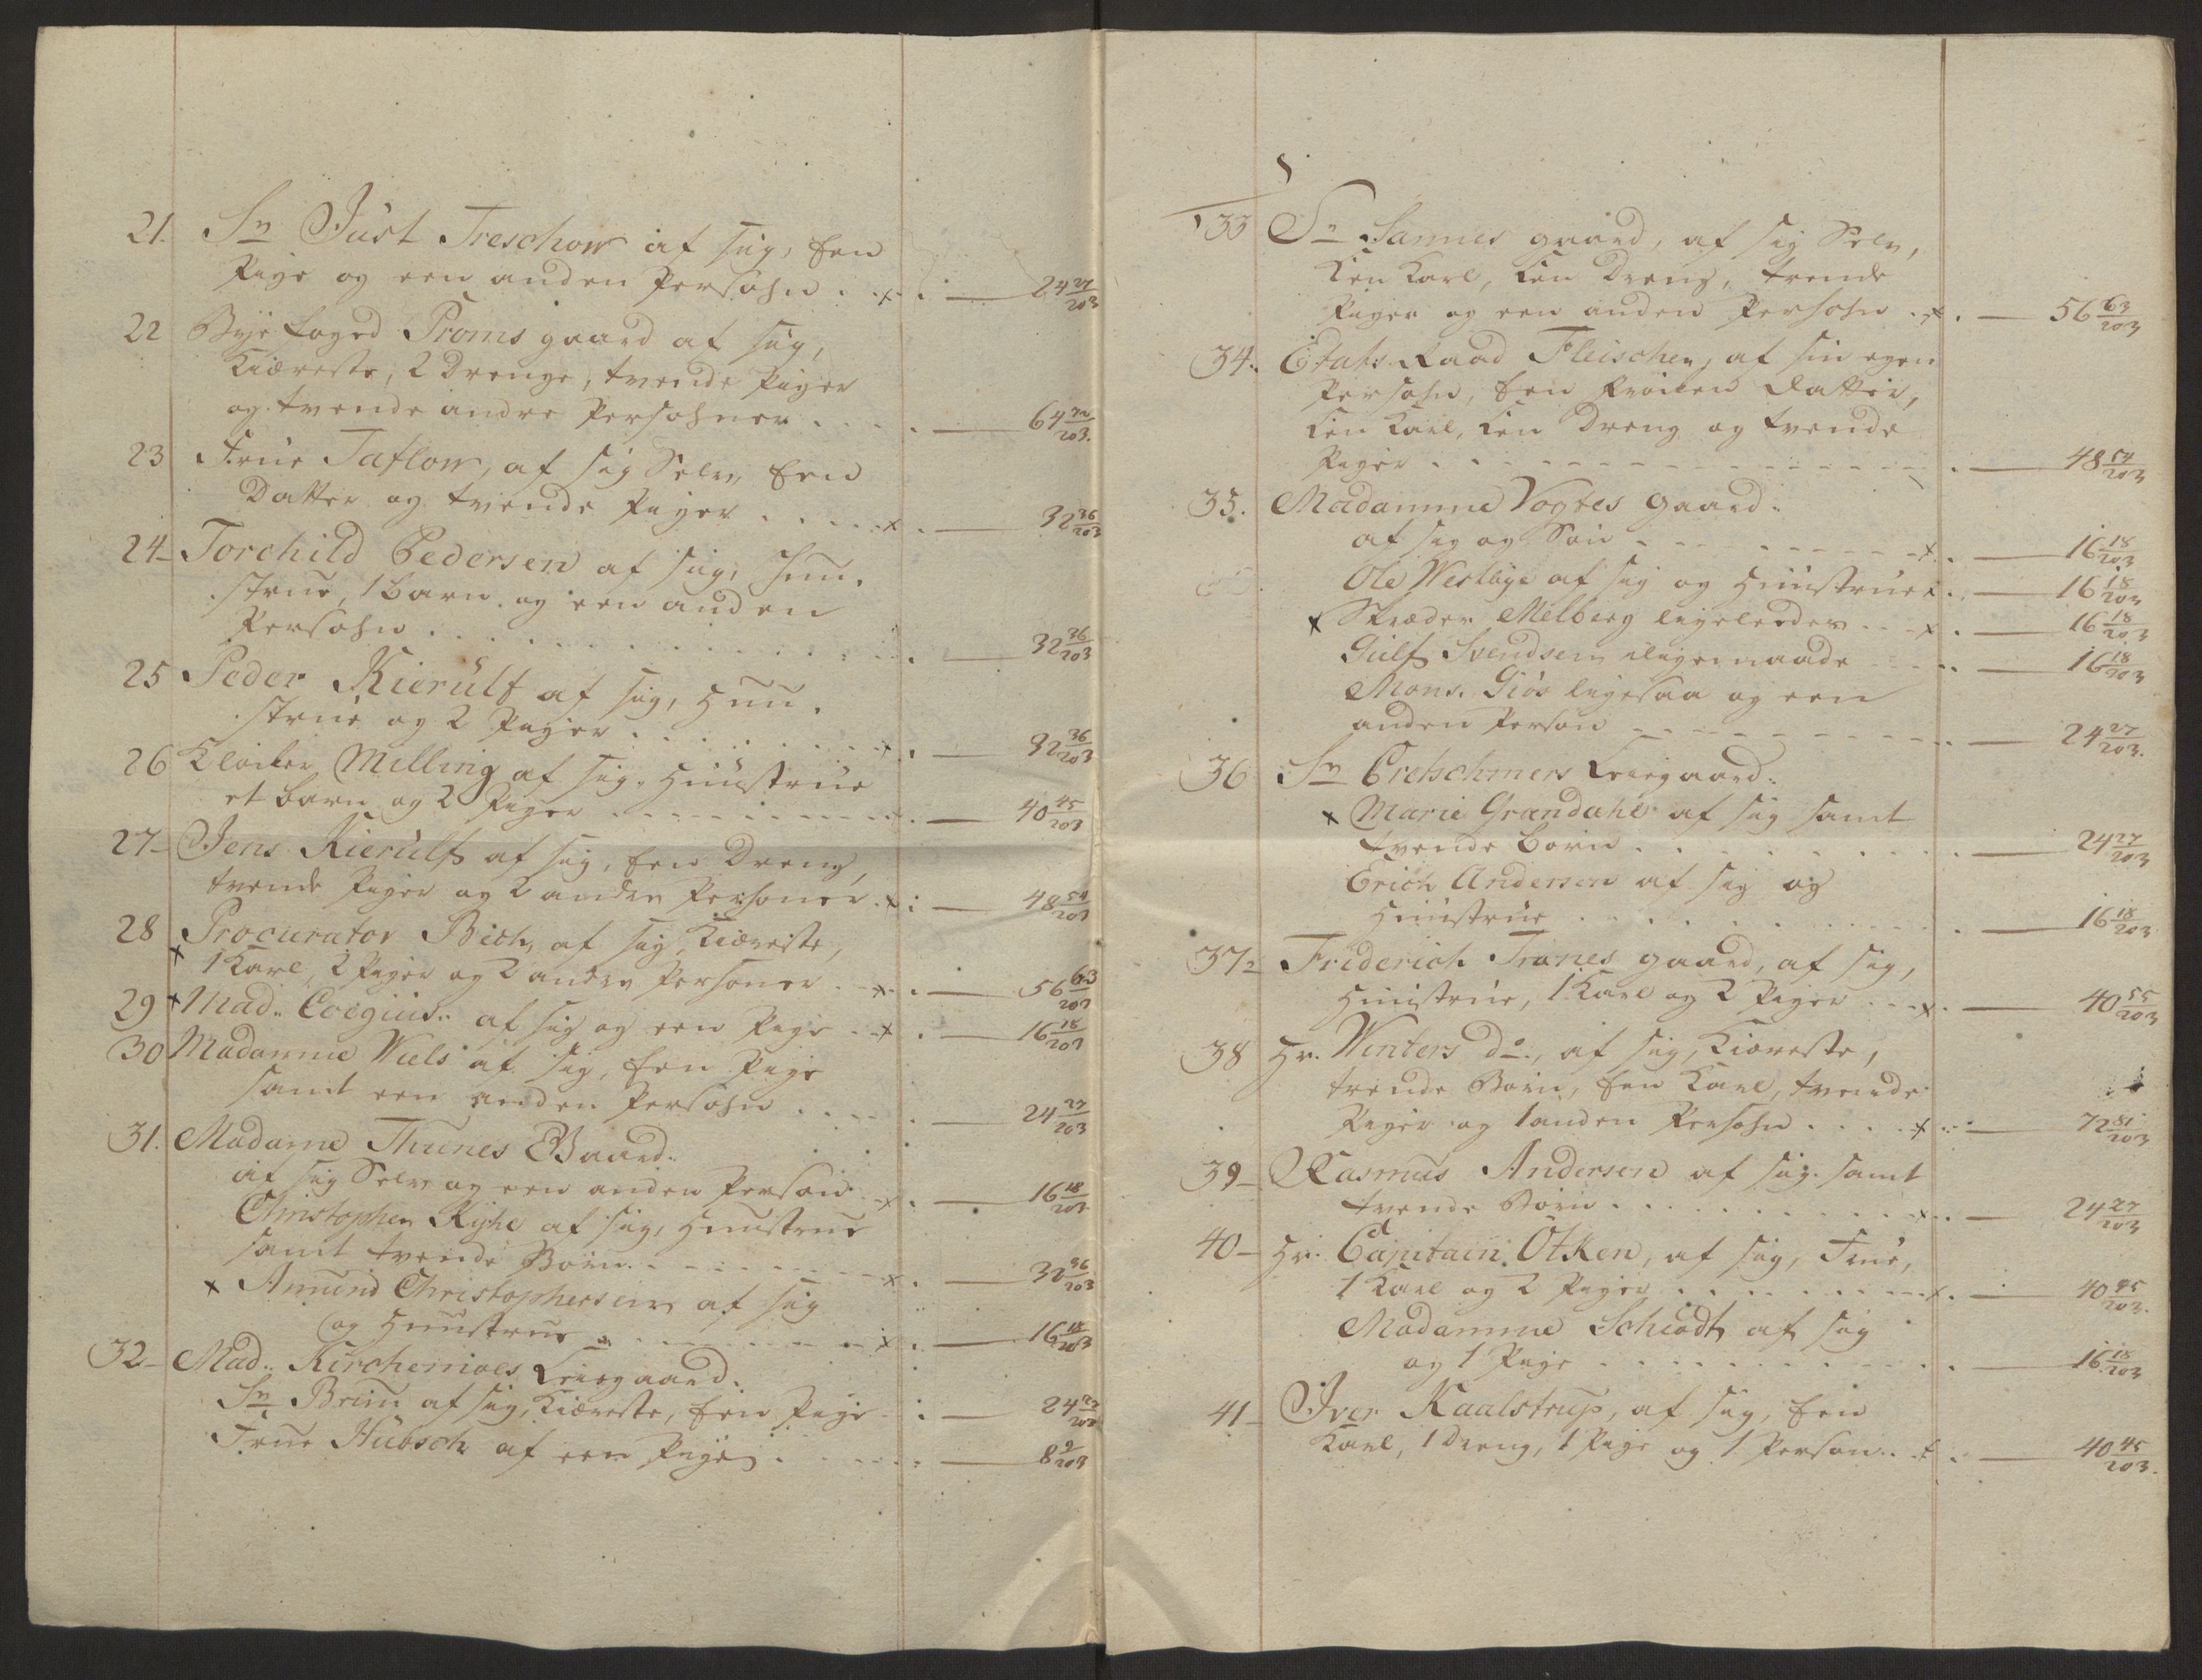 21. Sr Just Treschow af sig, Een
Pige og een anden Persohn . x . — 24 27/203
22 Bye foged Proms gaard af sig,
Kiæreste, 2 Drenge, tvende Piger
og tvende andre Persohner . . . — 64 72/203.
23 Frue Taflow, af sig Selv, Een
Datter og tvende Piger . . . x . — 32 36/203
24 – Torchild Pedersen af sig, Huu-
strue, 1 Barn og een anden
Persohn . . . — 32 36/203
25 Peder Kierulf af sig, Huu-
strue og 2 Piger . . . x . — 32 36/203
26 Klocker Milling af sig, Huustrue
et Barn og 2 Piger . . . x . — 40 45/203
27 – Jens Kierulf af sig, Een Dreng,
tvende Piger og 2 andre Personer . x . — 48 54/203
28 Procurator Bich, af sig, Kiæreste,
x 1 Karl, 2 Piger og 2 andre Personer . x . — 56 63/203
29 x Mad: Coegius: af sig og een Pige . x . — 16 18/203
30 Madamme Wiels af sig, Een Pige
samt een anden Persohn . . . — 24 27/203
31. Madame Thunes Gaard:
af sig Selv og een anden Person . x . — 16 18/203
Christopher Kyhl af sig, Huustrue
samt tvende Børn . . . x . — 32 36/203
x Amund Christophersen af sig
og Huustrue . . . x . — 16 18/203
32 – Mad: Kirchemoes Leiegaard:
Sr Brun af sig, Kiæreste, Een Pige . : — 24 27/203
Frue Hübsch af een Pige . . . — 8 9/203
33 Sr Sannes gaard, af sig Selv,
Een Karl, Een Dreng, trende
Piger og een anden Persohn . x . — 56 63/203
34. Etats Raad Fleischer, af sin egen
Persohn, Een Frøiken Datter,
Een Karl, Een Dreng og tvende
Piger . . . — 48 54/203
35. Madamme Vogtes gaard:
af sig og Søn . . . x . — 16 18/203
Ole Westbye af sig og Huustrue x . — 16 18/203
x Skræder Melberg ligeledes . . x . — 16 18/203
Gulf Svendsen iligemaade . . . — 16 18/203
Mons. Giös ligesaa og een
anden Person . . . — 24 27/203.
36 Sr Cretschmers Leiegaard:
x Marie Grandahl af sig samt
tvende Børn . . . — 24 27/203
Erich Andersen af sig og
Huustrue . . . — 16 18/203
37 – Friderich Tranes gaard, af sig,
Huustrue, 1 Karl og 2 Piger . . x . — 40 55/203
38 Hr. Winters do., af sig, Kiæreste,
trende Børn, Een Karl, tvende
Piger og 1 anden Persohn . . . x . — 72 81/203
39 – Rasmus Andersen af sig samt
tvende Børn . . . x . — 24 27/203
40 – Hr. Capitain Otken, af sig, Frue,
1 Karl og 2 Piger . . . x . — 40 45/203.
Madamme Schiødt af sig
og 1 Pige . . . — 16 18/203
41 – Iver Kaalstrup, af sig, Een
Karl, 1 Dreng, 1 Pige og 1 Person . x . — 40 45/203.